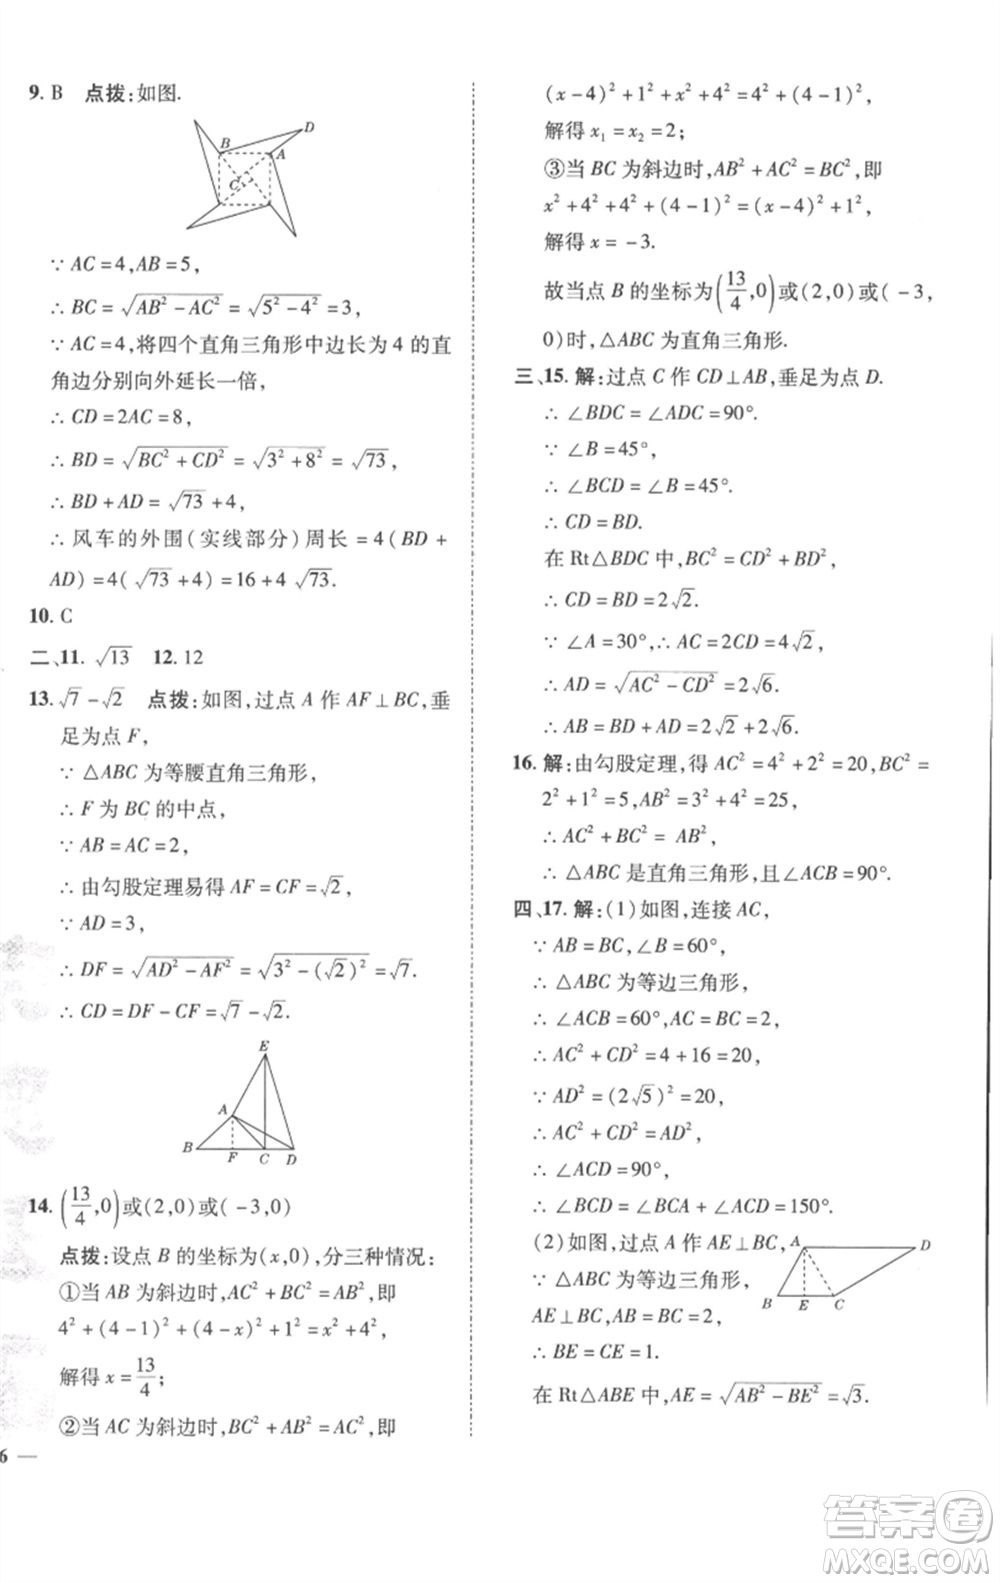 9. B 点拨:如图.
D
B
A
C
∵ AC=4,AB=5,
∴ BC=√(AB²-AC²)=√(5²-4²)=3,
∵ AC=4,将四个直角三角形中边长为4的直
角边分别向外延长一倍,
∴ CD=2AC=8,
∴ BD=√(BC²+CD²)=√(3²+8²)=√73,
∴ BD+AD=√73+4,
∴ 风车的外围(实线部分)周长=4(BD+
AD)=4(√73+4)=16+4√73.
10. C
二、11. √13 12. 12
13. √7-√2 点拨:如图,过点A作AF⊥BC,垂
足为点F,
∵ △ABC为等腰直角三角形,
∴ F为BC的中点,
∵ AB=AC=2,
∴ 由勾股定理易得AF=CF=√2,
∵ AD=3,
∴ DF=√(AD²-AF²)=√(3²-(√2)²)=√7.
∴ CD=DF-CF=√7-√2.
E
A
B F C D
14. (13/4,0)或(2,0)或(-3,0)
点拨:设点B的坐标为(x,0),分三种情况:
①当AB为斜边时,AC²+BC²=AB²,即
4²+(4-1)²+(4-x)²+1²=x²+4²,
解得x=13/4;
②当AC为斜边时,BC²+AB²=AC²,即
6 —
(x-4)²+1²+x²+4²=4²+(4-1)²,
解得x₁=x₂=2;
③当BC为斜边时,AB²+AC²=BC²,即
x²+4²+4²+(4-1)²=(x-4)²+1²,
解得x=-3.
故当点B的坐标为(13/4,0)或(2,0)或(-3,
0)时,△ABC为直角三角形.
三、15. 解:过点C作CD⊥AB,垂足为点D.
∴ ∠BDC=∠ADC=90°.
∵ ∠B=45°,
∴ ∠BCD=∠B=45°.
∴ CD=BD.
在Rt△BDC中,BC²=CD²+BD²,
∴ CD=BD=2√2.
∵ ∠A=30°,∴ AC=2CD=4√2,
∴ AD=√(AC²-CD²)=2√6.
∴ AB=BD+AD=2√2+2√6.
16. 解:由勾股定理,得AC²=4²+2²=20,BC²=
2²+1²=5,AB²=3²+4²=25,
∴ AC²+BC²= AB²,
∴ △ABC是直角三角形,且∠ACB=90°.
四、17. 解:(1)如图,连接AC,
∵ AB=BC,∠B=60°,
∴ △ABC为等边三角形,
∴ ∠ACB=60°,AC=BC=2,
∴ AC²+CD²=4+16=20,
∵ AD²=(2√5)²=20,
∴ AC²+CD²=AD²,
∴ ∠ACD=90°,
∴ ∠BCD=∠BCA+∠ACD=150°.
(2)如图,过点A作AE⊥BC,
∵ △ABC为等边三角形,
AE⊥BC,AB=BC=2,
∴ BE=CE=1.
A D
B E C
在Rt△ABE中,AE=√(AB²-BE²)=√3.
答案圈
MXQE.COM